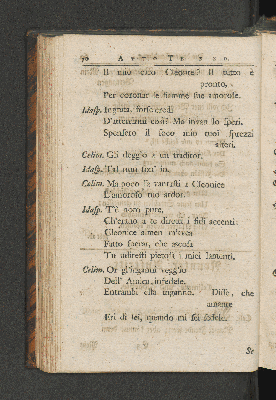 70 ATTO TERZO.
Il mio caro Cleonice? Il tutto è
pronto,
Per coronar le fiamme sue amorose.
Mosp. Ingrata, forse credi
D'atterrirmi così? Ma invan lo speri.
Spensero il foco mio tuoi sprezzi
alteri.
Celim. Gì deggio a un traditor.
Mosp. Tal non son' in.
Celim. Ma poco fà vantasti a Cleonice
L'amoroso tuo ardor.
Mosp. T'è noto pure,
Ch'erano a te diretti i fidi accenti:
Cleonice almen m'avea
Fatto sperar, che ascosa
Tu udiresti pietosa i miei lamenti.
Celim. Or gl'inganni veggio
Dell' Amica infedele.
Entrambi ella ingannò. Disse, che
amante
Eri di lei, quando mi sei fedele.
Se